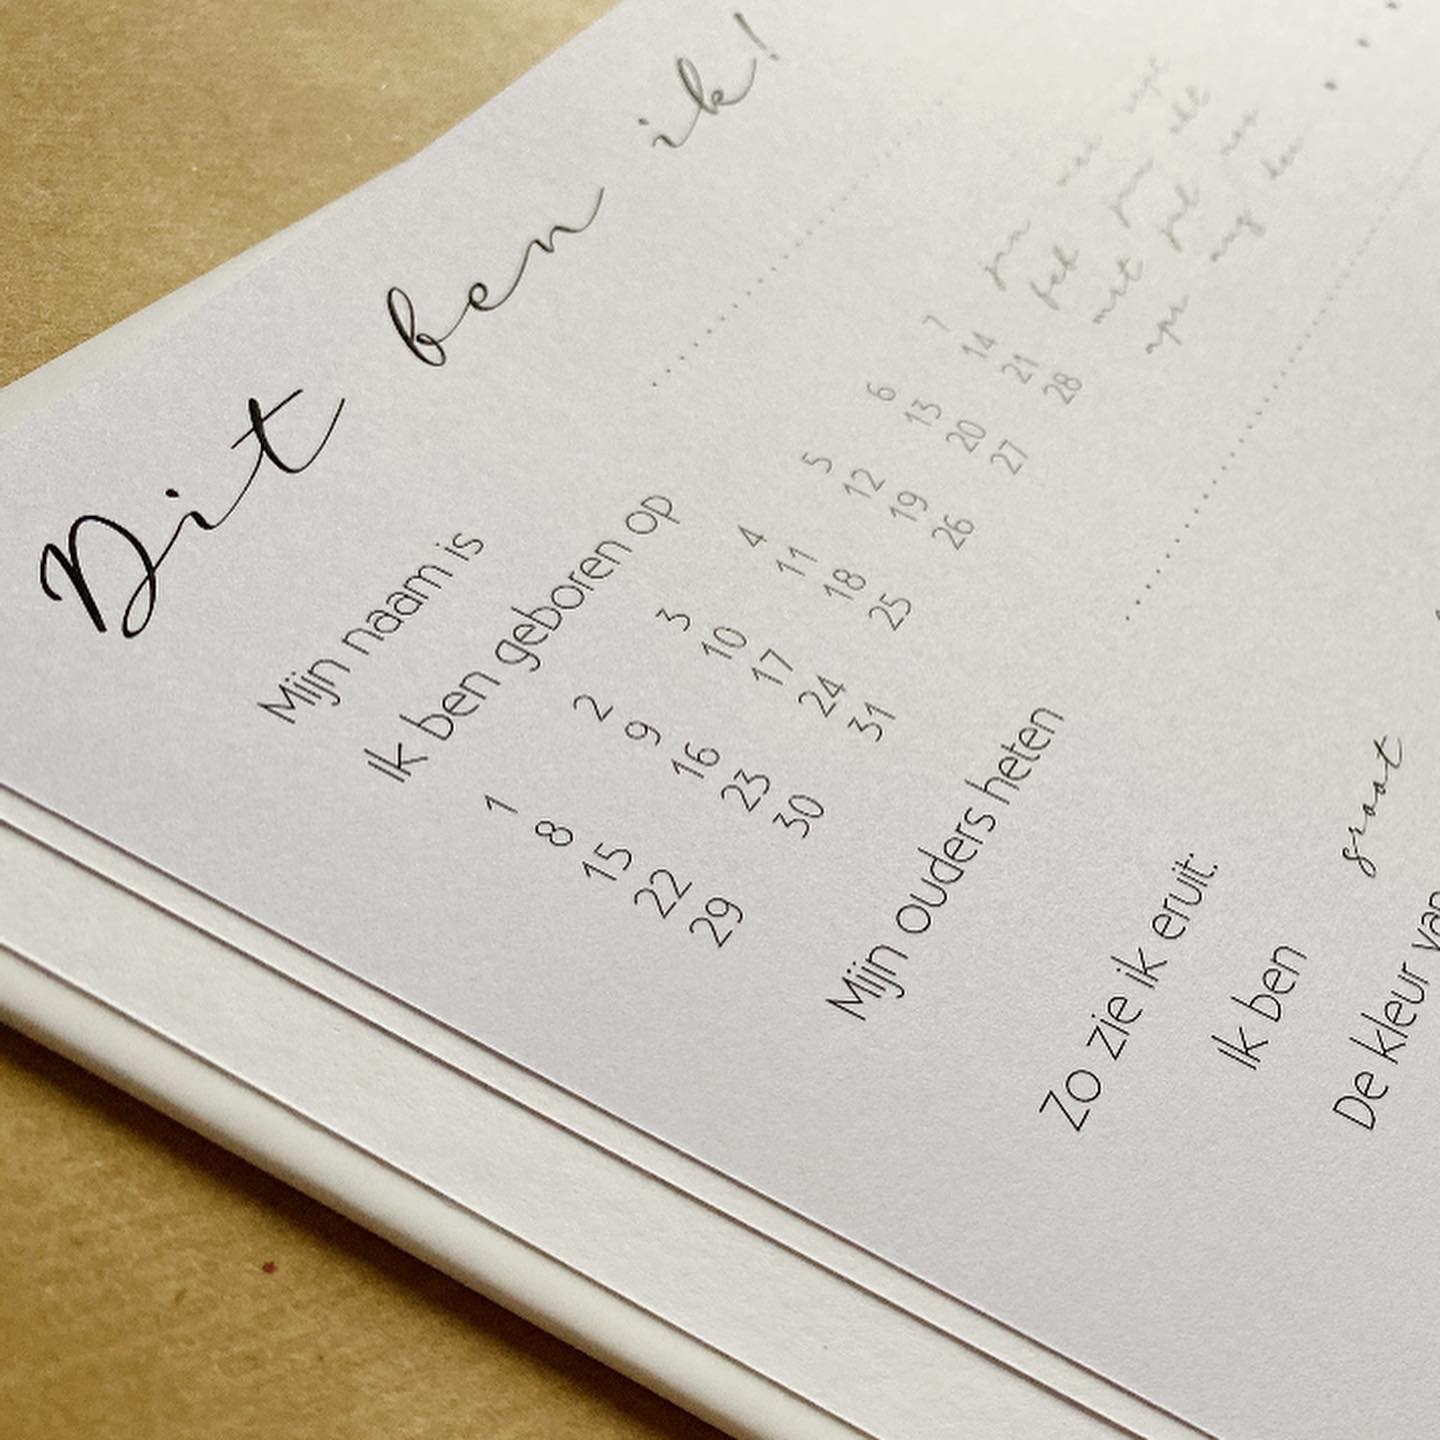 Dit ben ik!
Mijn naam is
Ik ben geboren op
1 2 3 4 5 6 7 jan mei sep
8 9 10 11 12 13 14 feb jun okt
15 16 17 18 19 20 21 mrt jul nov
22 23 24 25 26 27 28 apr aug dec
29 30 31
Mijn ouders heten
Zo zie ik eruit:
Ik ben groot
De kleur van